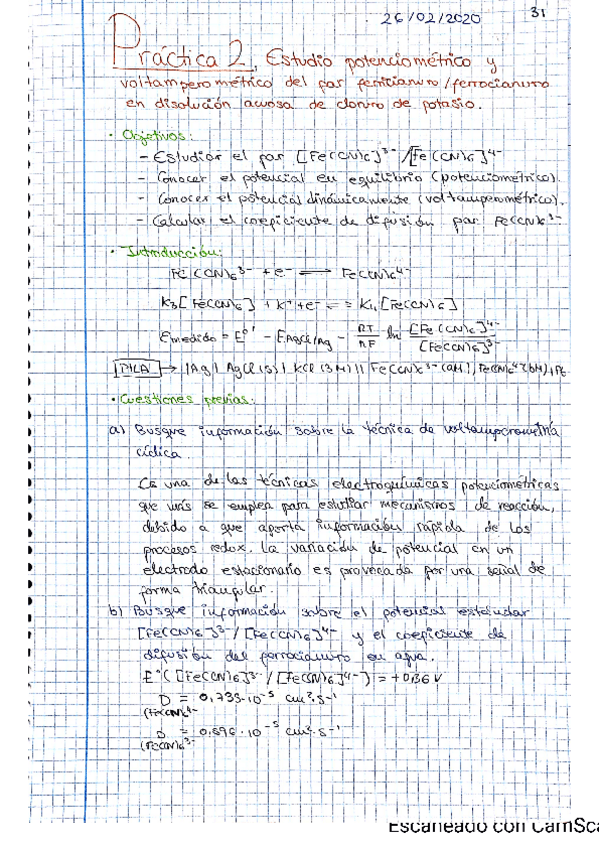 26/02/2020
31
Práctica 2. Estudio potenciométrico y
voltamperométrico del par ferricianuro/ferrocianuro
en disolución acuosa de cloruro de potasio.
· Objetivos:
- Estudiar el par [Fe(CN)6]3-/[Fe(CN)6]4-
- Conocer el potencial en equilibrio (potenciométrico).
- Conocer el potencial dinámicamente (voltamperométrico).
- Calcular el coeficiente de difusión par Fe(CN)6 3-
· Introducción:
Fe(CN)6 3- + e- ⇌ Fe(CN)6 4-
K3[Fe(CN)6] + K+ + e- ⇌ K4[Fe(CN)6]
Emedido = E0' - EAgCl/Ag - RT/nF ln [Fe(CN)6]4-/[Fe(CN)6]3-
PILA → |Ag| AgCl(s) | KCl (3M) || Fe(CN)6 3-(aM), Fe(CN)6 4-(bM) | Pt
· Cuestiones previas:
a) Busque información sobre la técnica de voltamperometría
cíclica.
Es una de las técnicas electroquímicas potenciométricas
que más se emplea para estudiar mecanismos de reacción,
debido a que aporta información rápida de los
procesos redox. La variación de potencial en un
electrodo estacionario es provocada por una señal de
forma triangular.
b) Busque información sobre el potencial estándar
[Fe(CN)6]3-/[Fe(CN)6]4- y el coeficiente de
difusión del ferrocianuro en agua.
E°([Fe(CN)6]3-/[Fe(CN)6]4-) = +0,36 V
D = 0,735·10-5 cm2·s-1
(Fe(CN)6 4-
D = 0,896·10-5 cm2·s-1
(Fe(CN)6 3-
Escaneado con CamSca